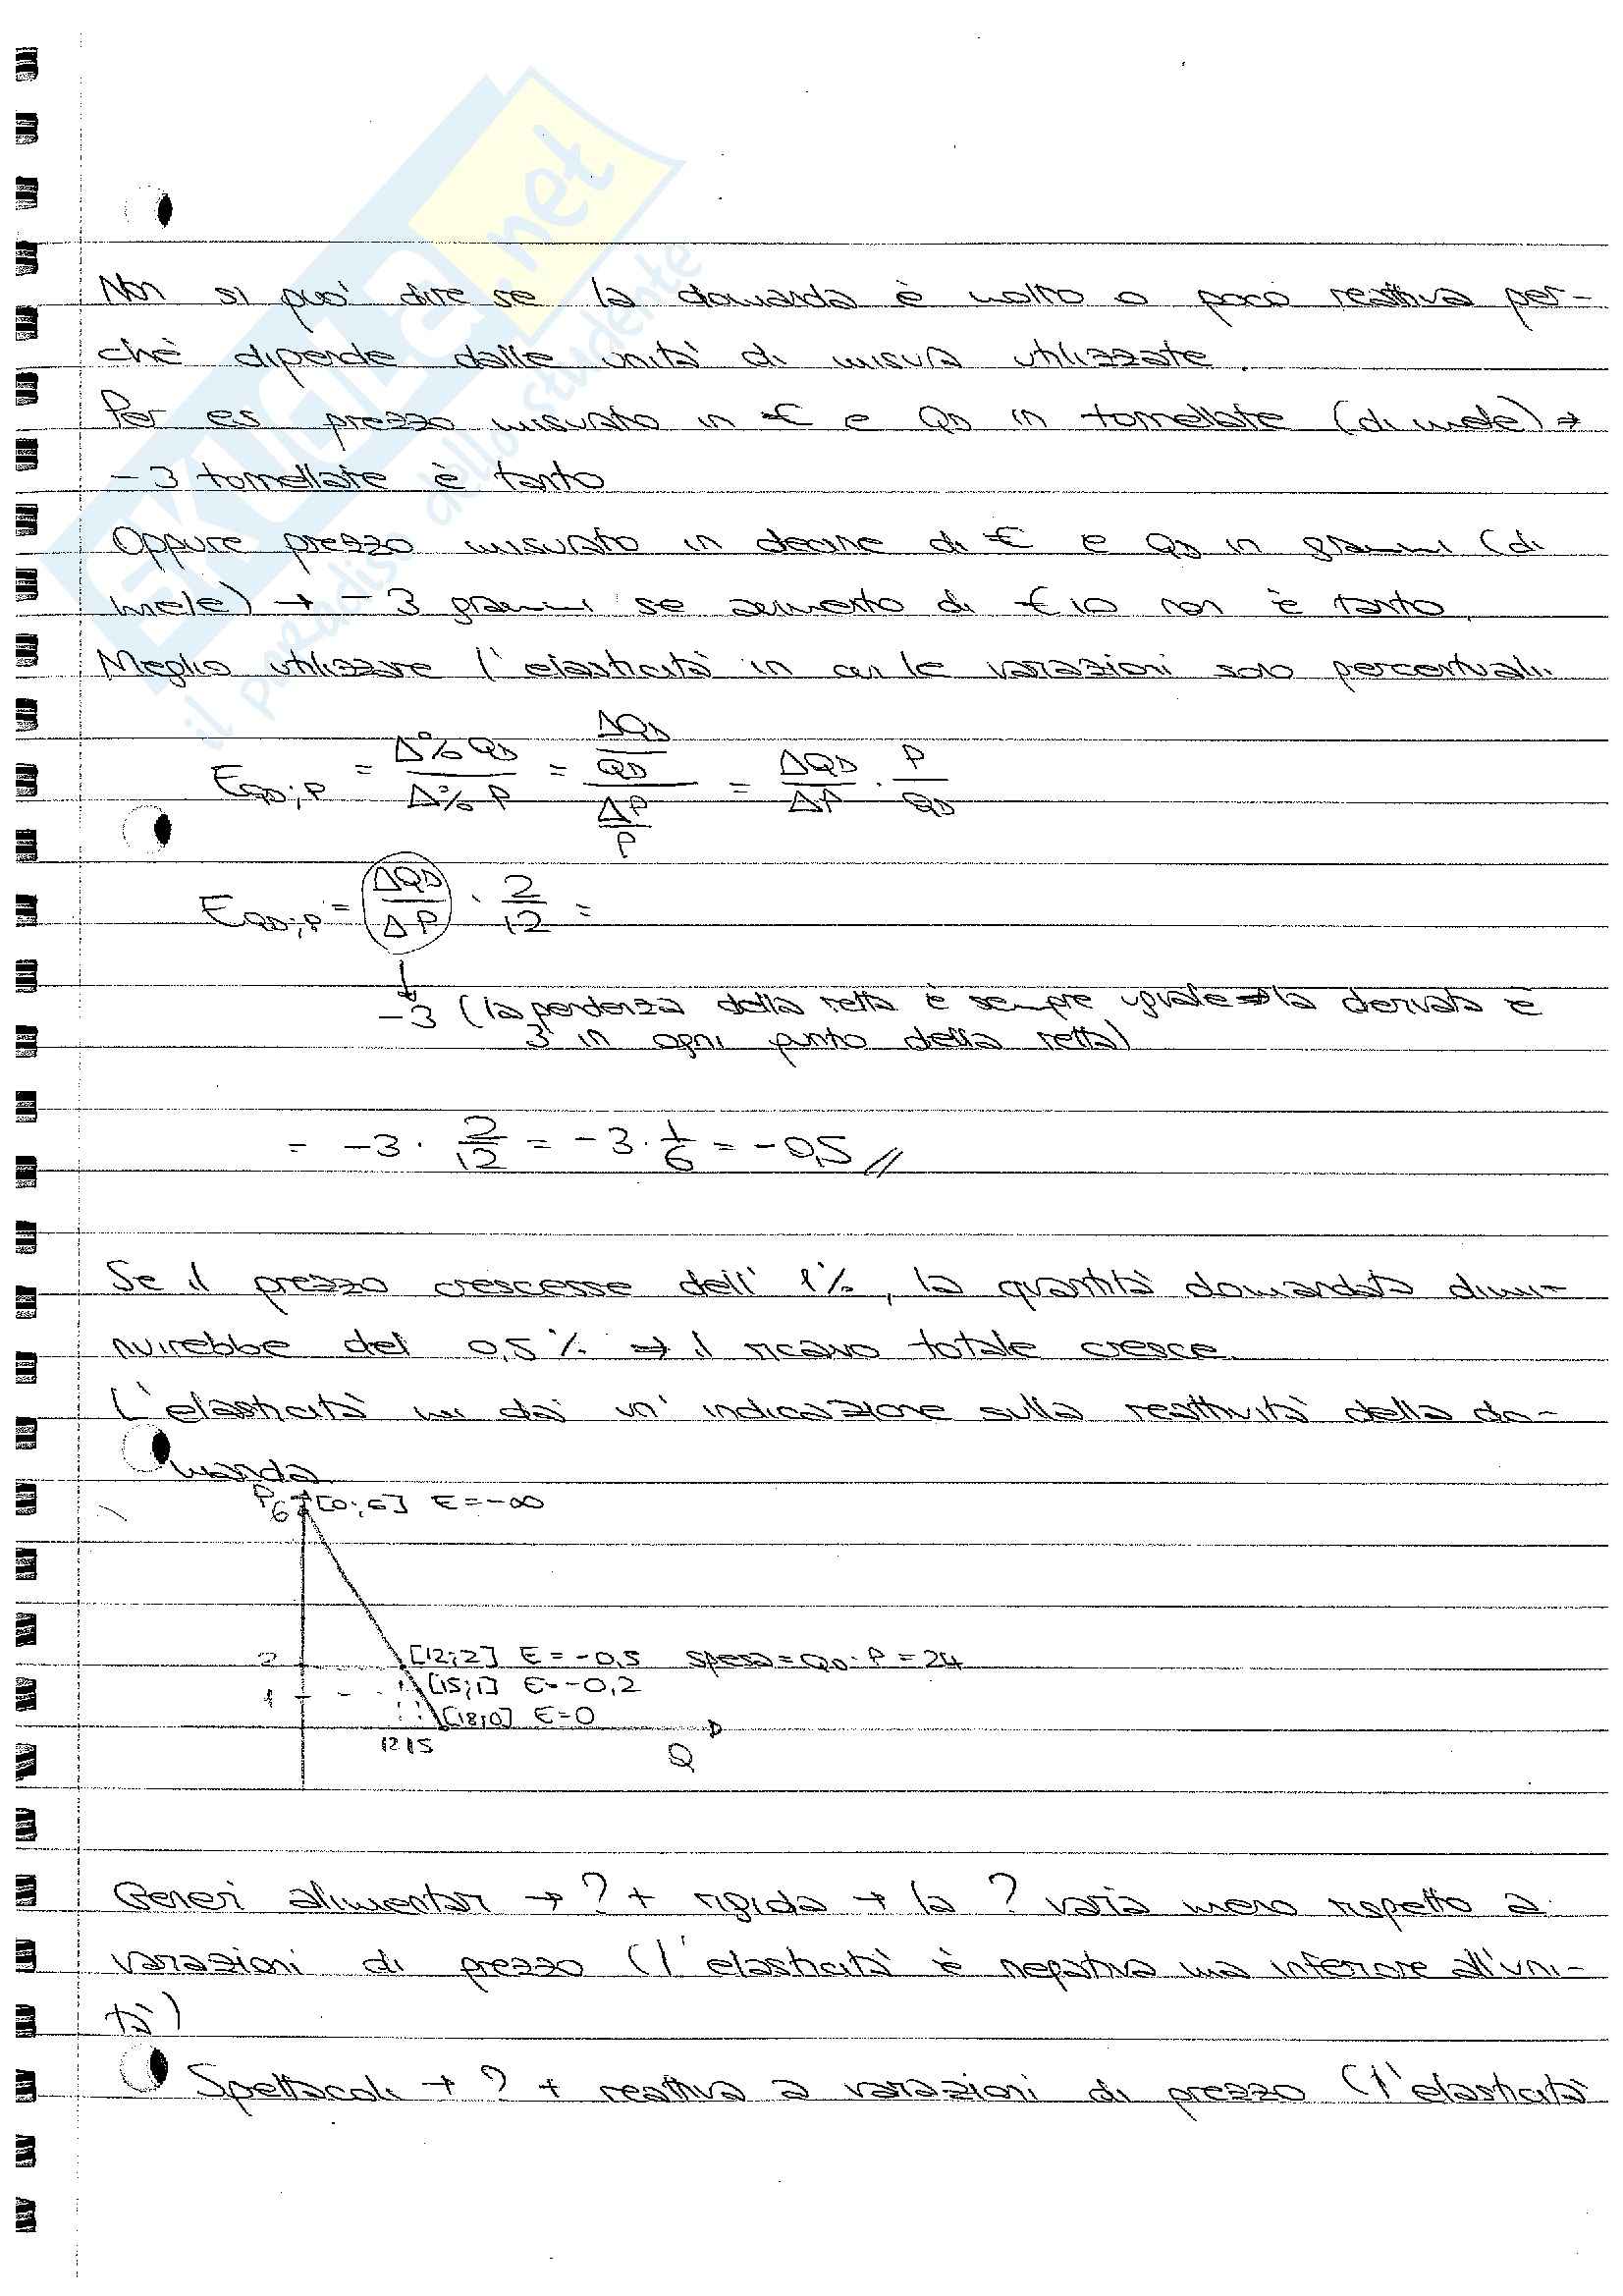 SKUOLA.net
il paradiso dello studente
Non si può dire se la domanda è molto o poco reattiva per-
chè dipende dalle unità di misura utilizzate.
Per es prezzo misurato in € e QD in tonnellate (di mele) →
-3 tonnellate è tanto
Oppure prezzo misurato in decine di € e QD in grammi (di
mele) → -3 grammi se aumento di €10 non è tanto.
Meglio utilizzare l'elasticità in cui le variazioni sono percentuali.
EQD;P = Δ%QD / Δ%P = (ΔQD/QD) / (ΔP/P) = ΔQD/ΔP · P/QD
EQD;P = ΔQD/ΔP · 2/12 =
↓
-3 (la pendenza della retta è sempre uguale ⇒ la derivata è
3 in ogni punto della retta)
= -3 · 2/12 = -3 · 1/6 = -0,5 //
Se il prezzo crescesse dell'1%, la quantità domandata dimi-
nuirebbe del 0,5% ⇒ il ricavo totale cresce.
L'elasticità mi dà un'indicazione sulla reattività della do-
manda
P 6 [0;6] E=-∞
2 [12;2] E=-0,5 spesa=QD·P=24
1 [15;1] E=-0,2
[18;0] E=0
12 15
Q
Generi alimentari → ? + rigida → la ? varia meno rispetto a
variazioni di prezzo (l'elasticità è negativa ma inferiore all'uni-
tà)
Spettacoli → ? + reattiva a variazioni di prezzo (l'elasticità